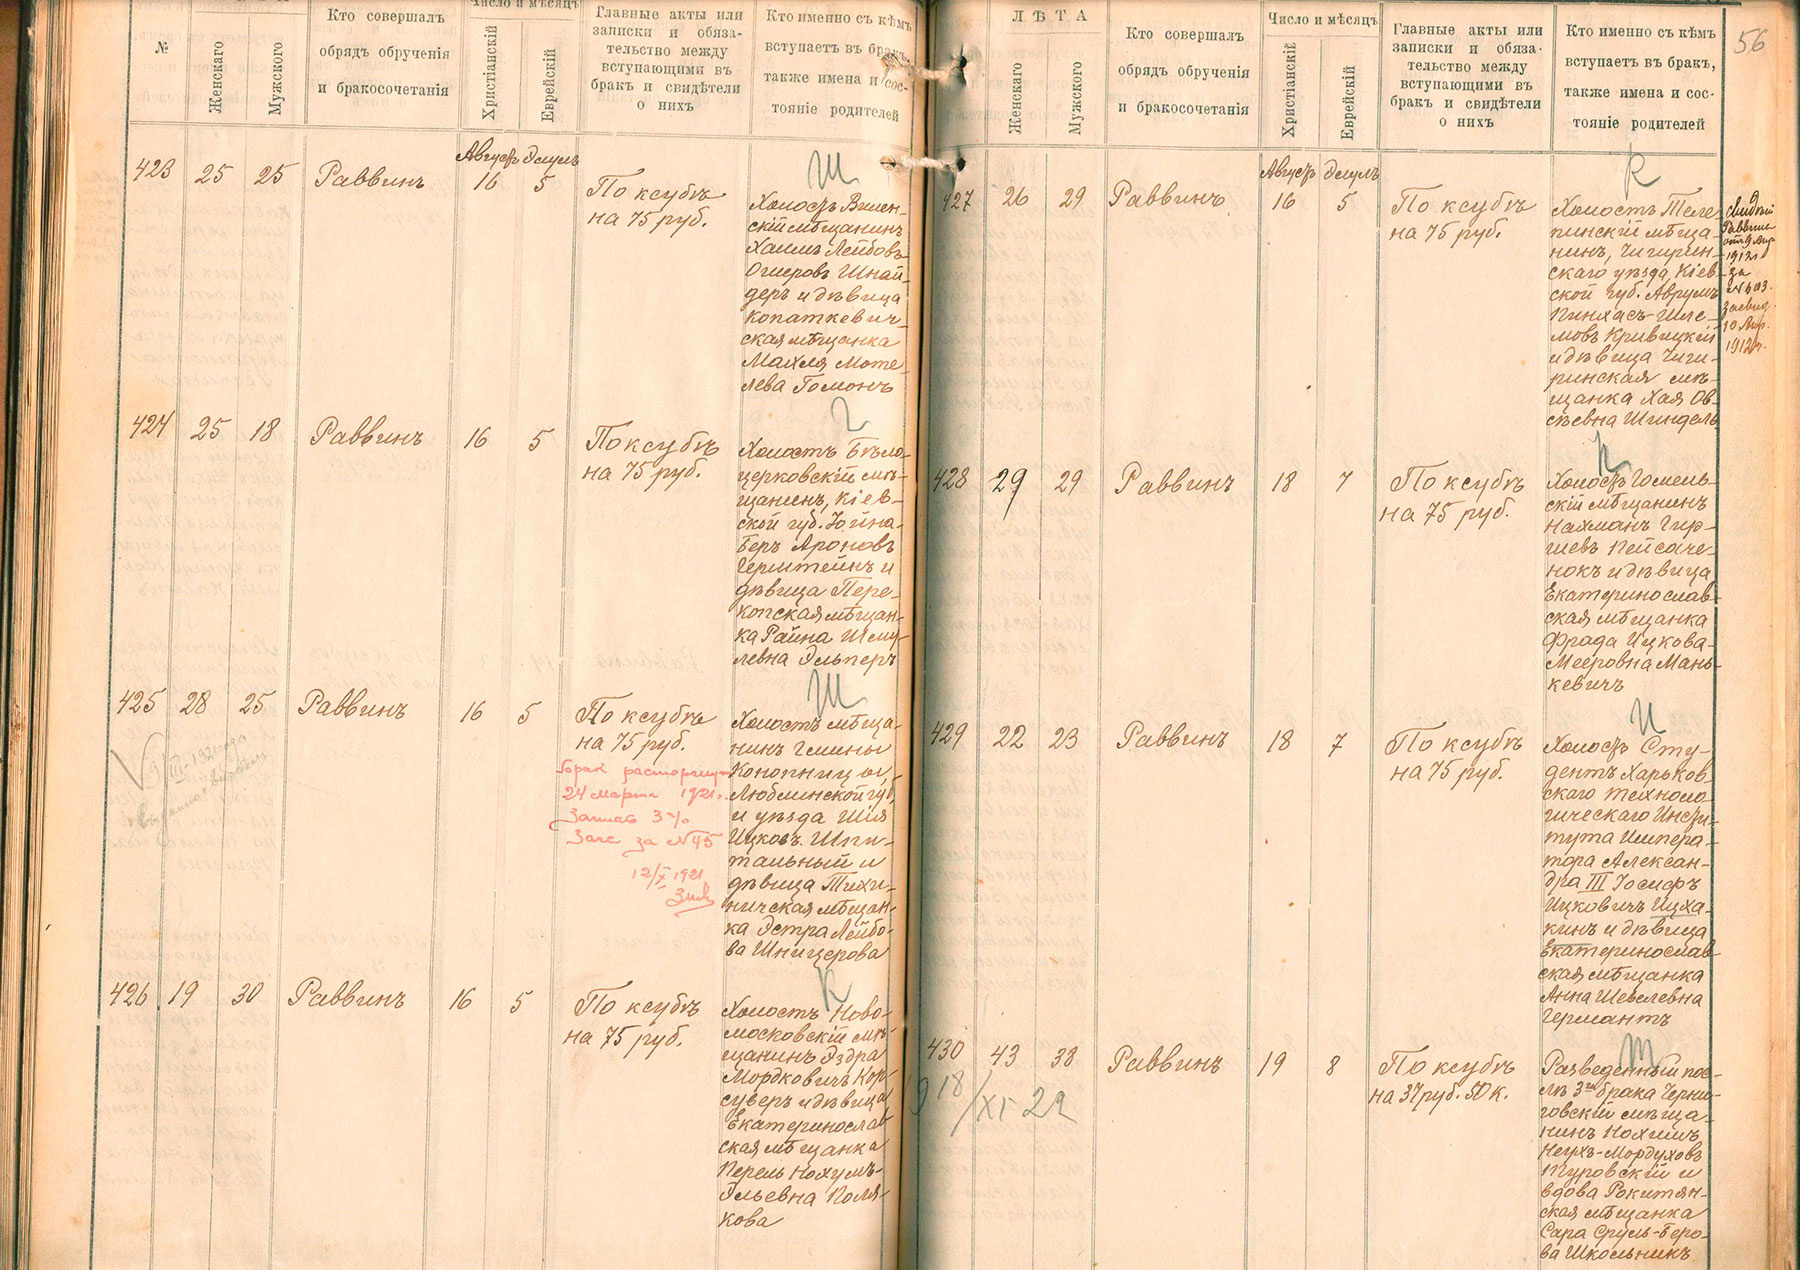 №
Женскаго
Мужского
Кто совершалъ
обрядъ обрученія
и бракосочетанія
Число и мѣсяцъ
Христіанскій
Еврейскій
Главные акты или
записки и обяза-
тельство между
вступающими въ
бракъ и свидѣтели
о нихъ
Кто именно съ кѣмъ
вступаетъ въ бракъ,
также имена и сос-
тояніе родителей
423 25 25 Раввинъ
Августъ Элулъ
16 5
По ксубѣ
на 75 руб.
Ш
Холостъ Вилен-
скій мѣщанинъ
Хаимъ Лейбовъ
Ошеровъ Шнай
деръ и дѣвица
Копаткевич-
ская мѣщанка
Махля Моте-
лева Гомонъ
424 25 18 Раввинъ 16 5
По ксубѣ
на 75 руб.
Г
Холостъ Бѣло-
церковскій мѣ-
щанинъ, Кіев-
ской губ. Іойна-
Беръ Ароновъ
Герштейнъ и
дѣвица Пере-
копская мѣщан-
ка Райна Шму-
левна Эльперъ
425 28 25 Раввинъ 16 5
По ксубѣ
на 75 руб.
Бракъ расторгнут
24 марта 1921.
Запись
за № 45
12/X 1921
Ш
Холостъ мѣща-
нинъ гмины
Конопницы,
Люблинской губ,
и уѣзда Шія
Ицковъ Шпи-
тальный и
дѣвица Тихи-
ничская мѣщан-
ка Эстра Лейбо-
ва Шницерова
426 19 30 Раввинъ 16 5
По ксубѣ
на 75 руб.
К
Холостъ Ново-
московскій мѣ-
щанинъ Эздра
Мордковичъ Кор-
суверъ и дѣвица
Екатеринослав
ская мѣщанка
Перель Нохумъ-
Эльевна Поля-
кова
ЛѢТА
Женскаго
Мужского
Кто совершалъ
обрядъ обрученія
и бракосочетанія
Число и мѣсяцъ
Христіанскій
Еврейскій
Главные акты или
записки и обяза-
тельство между
вступающими въ
бракъ и свидѣтели
о нихъ
Кто именно съ кѣмъ
вступаетъ въ бракъ,
также имена и сос-
тояніе родителей
56
427 26 29 Раввинъ
Августъ Элулъ
16 5
По ксубѣ
на 75 руб.
К
Холостъ Теле-
пинскій мѣща-
нинъ, Чигирин-
скаго уѣзда, Кіев-
ской губ. Аврумъ
Пинхасъ-Шле-
мовъ Кривицкій
и дѣвица Чиги-
ринская мѣ-
щанка Хая Ов-
сѣевна Шиндель
1912
за
10 Апр.
1912 г.
428 29 29 Раввинъ 18 7
По ксубѣ
на 75 руб.
П
Холостъ Гомель-
скій мѣщанинъ
Нахманъ Гир-
шевъ Пейсаче-
нокъ и дѣвица
Екатеринослав-
ская мѣщанка
Фрада Ицкова-
Мееровна Мань-
кевичъ
429 22 23 Раввинъ 18 7
По ксубѣ
на 75 руб.
И
Холостъ Сту-
дентъ Харьков-
скаго техноло-
гическаго Инсти-
тута Импера-
тора Алексан-
дра III Іосифъ
Ицковичъ Ицха-
кинъ и дѣвица
Екатеринослав
ская мѣщанка
Анна Шевелевна
Германтъ
430 43 38 Раввинъ 19 8
18/XI 22
По ксубѣ
на 37 руб. 50 к.
Т
Разведенный пос-
лѣ 3го брака Черни-
говскій мѣща-
нинъ Нохимъ
Неухъ-Мордуховъ
Туровскій и
вдова Рокитян-
ская мѣщанка
Сара Сруль-Беро-
ва Школьникъ